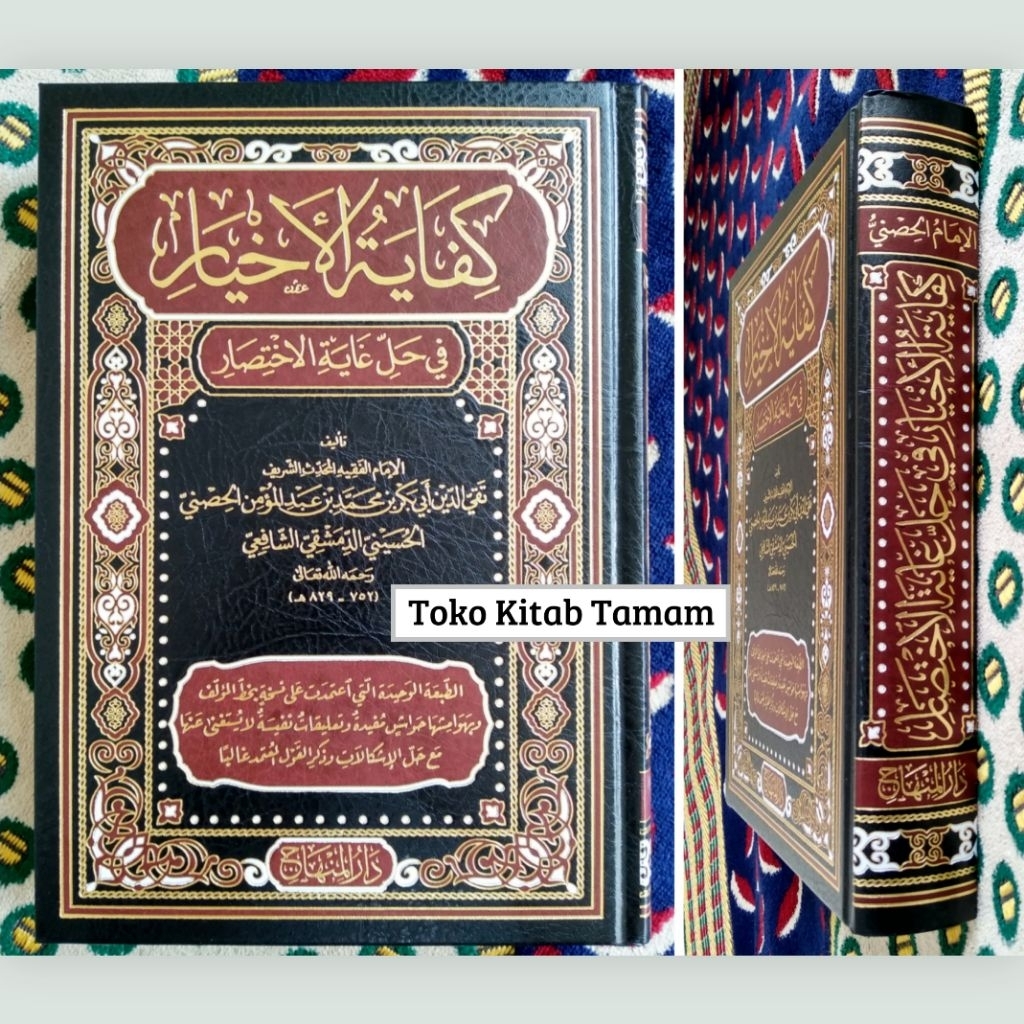 كِفَايَةُ الْأَخْيَارِ
فِي حَلِّ غَايَةِ الِاخْتِصَارِ
تأليف
الإمام الفقيه المحدث الشريف
تقي الدين أبي بكر بن محمد بن عبد المؤمن الحصني
الحسيني الدمشقي الشافعي
رحمه الله تعالى
(٧٥٢ - ٨٢٩ هـ)
الطبعة الوحيدة التي اعتمدت على نسخة بخط المؤلف
وبهوامشها حواشٍ مفيدة وتعليقات نفيسة لا يستغنى عنها
مع حل الإشكالات وذكر القول المعتمد غالبًا
دار المنهاج
Toko Kitab Tamam
الإمام الحصني
كفاية الأخيار في حل غاية الاختصار
دار المنهاج
كفاية الأخيار
في حل غاية الاختصار